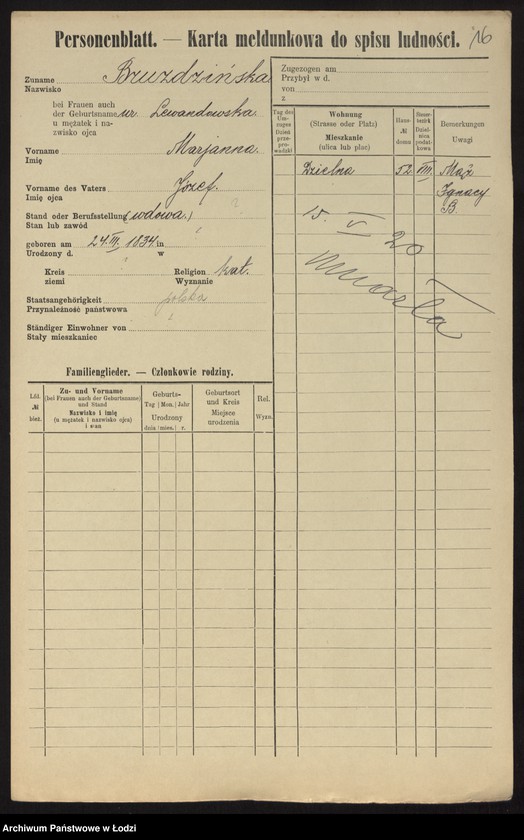 Personenblatt. — Karta meldunkowa do spisu ludności. 16
Zuname Bruzdzińska
Nazwisko
bei Frauen auch
der Geburtsname ur. Lewandowska
u mężatek i na-
zwisko ojca
Vorname Marjanna.
Imię
Vorname des Vaters Józef.
Imię ojca
Stand oder Berufsstellung (wdowa.) ?
Stan lub zawód
geboren am 24.III. 1834 in
Urodzony d. w
Kreis Religion kat.
ziemi Wyznanie
Staatsangehörigkeit polska
Przynależność państwowa
Ständiger Einwohner von
Stały mieszkaniec
Zugezogen am
Przybył w d.
von
z
Tag des
Um-
zuges
Dzień
prze-
prowadzki
Wohnung
(Strasse oder Platz)
Mieszkanie
(ulica lub plac)
Haus-
№
domu
Steuer-
bezirk
Dziel-
nica
podat-
kowa
Bemerkungen
Uwagi
Dzielna 52. VIII. Mąż
Ignacy
B.
15. V 20
Umarła
Familienglieder. — Członkowie rodziny.
Lfd.
№
bież.
Zu- und Vorname
(bei Frauen auch der Geburtsname)
und Stand
Nazwisko i imię
(u mężatek i nazwisko ojca)
i stan
Geburts-
Tag Mon. Jahr
Urodzony
dnia mies. r.
Geburtsort
und Kreis
Miejsce
urodzenia
Rel.
Wyzn.
Archiwum Państwowe w Łodzi